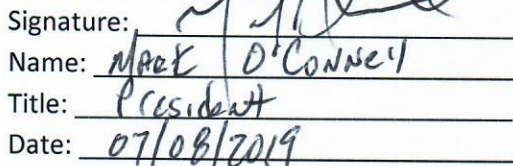 Signature:
Name: Mark O'Connell
Title: President
Date: 07/08/2019